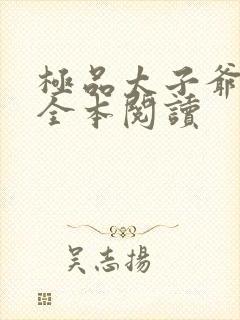 極品太子爺
全本閱讀
吴志揚